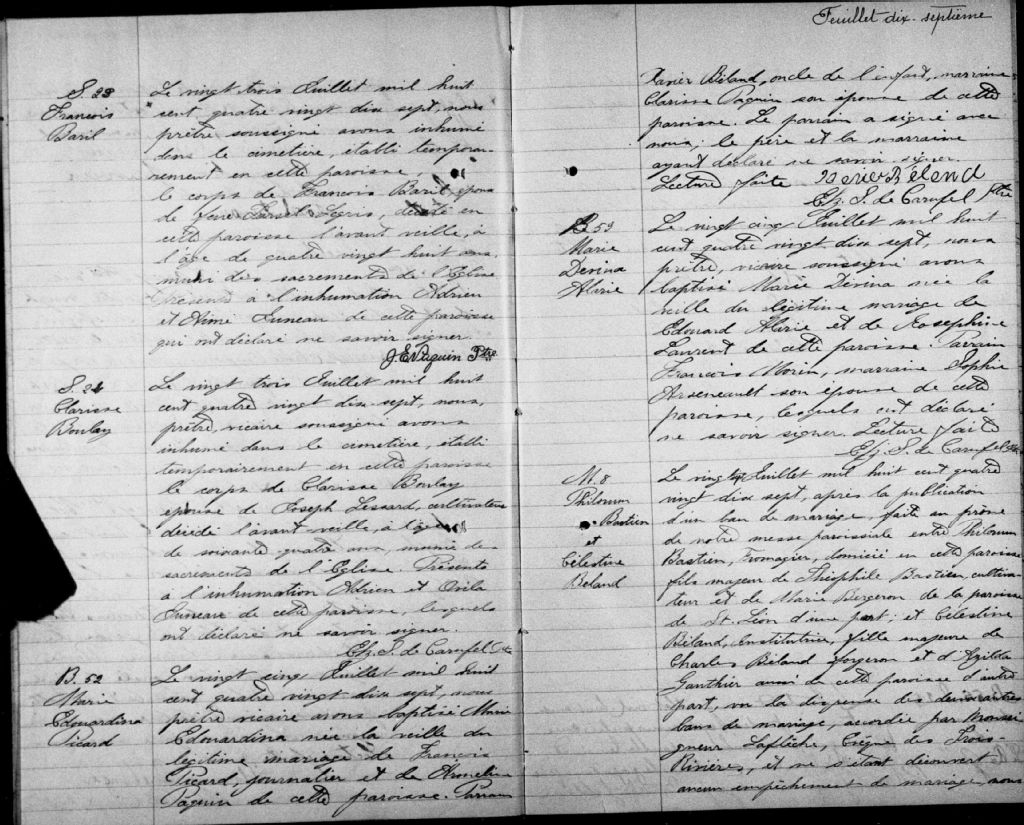 S. 23
François
Baril
Le vingt trois Juillet mil huit
cent quatre vingt dix sept, nous
prêtre soussigné avons inhumé
dans le cimetière, établi tempora-
rement en cette paroisse
le corps de François Baril époux
de feue Legris, décédé en
cette paroisse l'avant veille, à
l'âge de quatre vingt huit ans,
muni des sacrements de l'Eglise
Présents à l'inhumation Adrien
et Aimé Juneau de cette paroisse
qui ont déclaré ne savoir signer.
J. E. Paquin Ptre
S. 24
Clarisse
Boulay
Le vingt trois Juillet mil huit
cent quatre vingt dix-sept, nous,
prêtre, vicaire soussigné avons
inhumé dans le cimetière, établi
temporairement en cette paroisse
le corps de Clarisse Boulay
épouse de Joseph Lessard, cultivateur
décédé l'avant veille, à l'âge
de soixante quatre ans, munie des
sacrements de l'Eglise. Présents
à l'inhumation Adrien et Ovila
Juneau de cette paroisse, lesquels
ont déclaré ne savoir signer.
Chs. S. de Carufel Ptre
B. 52
Marie
Edouardina
Picard
Le vingt cinq Juillet mil huit
cent quatre vingt dix sept, nous
prêtre vicaire avons baptisé Marie
Edouardina née la veille du
légitime mariage de François
Picard, journalier et de Armeline
Paquin de cette paroisse. Parrain
Feuillet dix-septième
Xavier Béland, oncle de l'enfant, marraine
Clarisse Paquin son épouse de cette
paroisse. Le parrain a signé avec
nous; le père et la marraine
ayant déclaré ne savoir signer.
Lecture faite Xavier Béland
Chs. S. de Carufel Ptre
B. 53
Marie
Devina
Alarie
Le vingt cinq Juillet mil huit
cent quatre vingt dix sept, nous
prêtre, vicaire soussigné avons
baptisé Marie Devina née la
veille du légitime mariage de
Edouard Alarie et de Rosephine
Laurent de cette paroisse. Parrain
François Morin, marraine Sophie
Arseneault son épouse de cette
paroisse, lesquels ont déclaré
ne savoir signer. Lecture faite
Chs. S. de Carufel Ptre
M. 8
Philorum
Bastien
et
Célestine
Beland
Le vingt Juillet mil huit cent quatre
vingt dix sept, après la publication
d'un ban de mariage, faite au prône
de notre messe paroissiale entre Philorum
Bastien, Fromagier, domicié en cette paroisse
fils majeur de Théophile Bastien, cultiva-
teur et de Marie Bergeron de la paroisse
de St. Léon d'une part; et Célestine
Béland, Institutrice, fille majeure de
Charles Béland forgeron et d'Azilda
Gauthier aussi de cette paroisse d'autre
part, vu la dispense des deux autres
bans de mariage, accordée par Monsei-
gneur Laflèche, Evêque des Trois-
Rivières, et ne s'étant découvert
aucun empêchement de mariage, nous